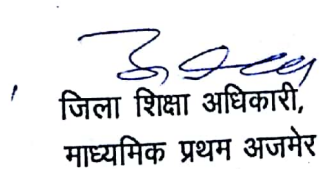 जिला शिक्षा अधिकारी,
माध्यमिक प्रथम अजमेर